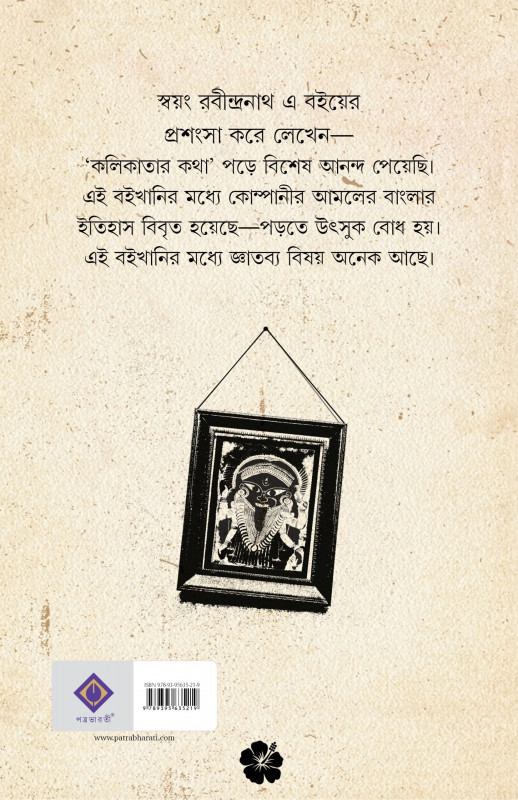 স্বয়ং রবীন্দ্রনাথ এ বইয়ের
প্রশংসা করে লেখেন—
‘কলিকাতার কথা’ পড়ে বিশেষ আনন্দ পেয়েছি।
এই বইখানির মধ্যে কোম্পানীর আমলের বাংলার
ইতিহাস বিবৃত হয়েছে—পড়তে উৎসুক বোধ হয়।
এই বইখানির মধ্যে জ্ঞাতব্য বিষয় অনেক আছে।
ISBN 978-93-95635-21-9
9 789395 635219
পত্রভারতী®
www.patrabharati.com